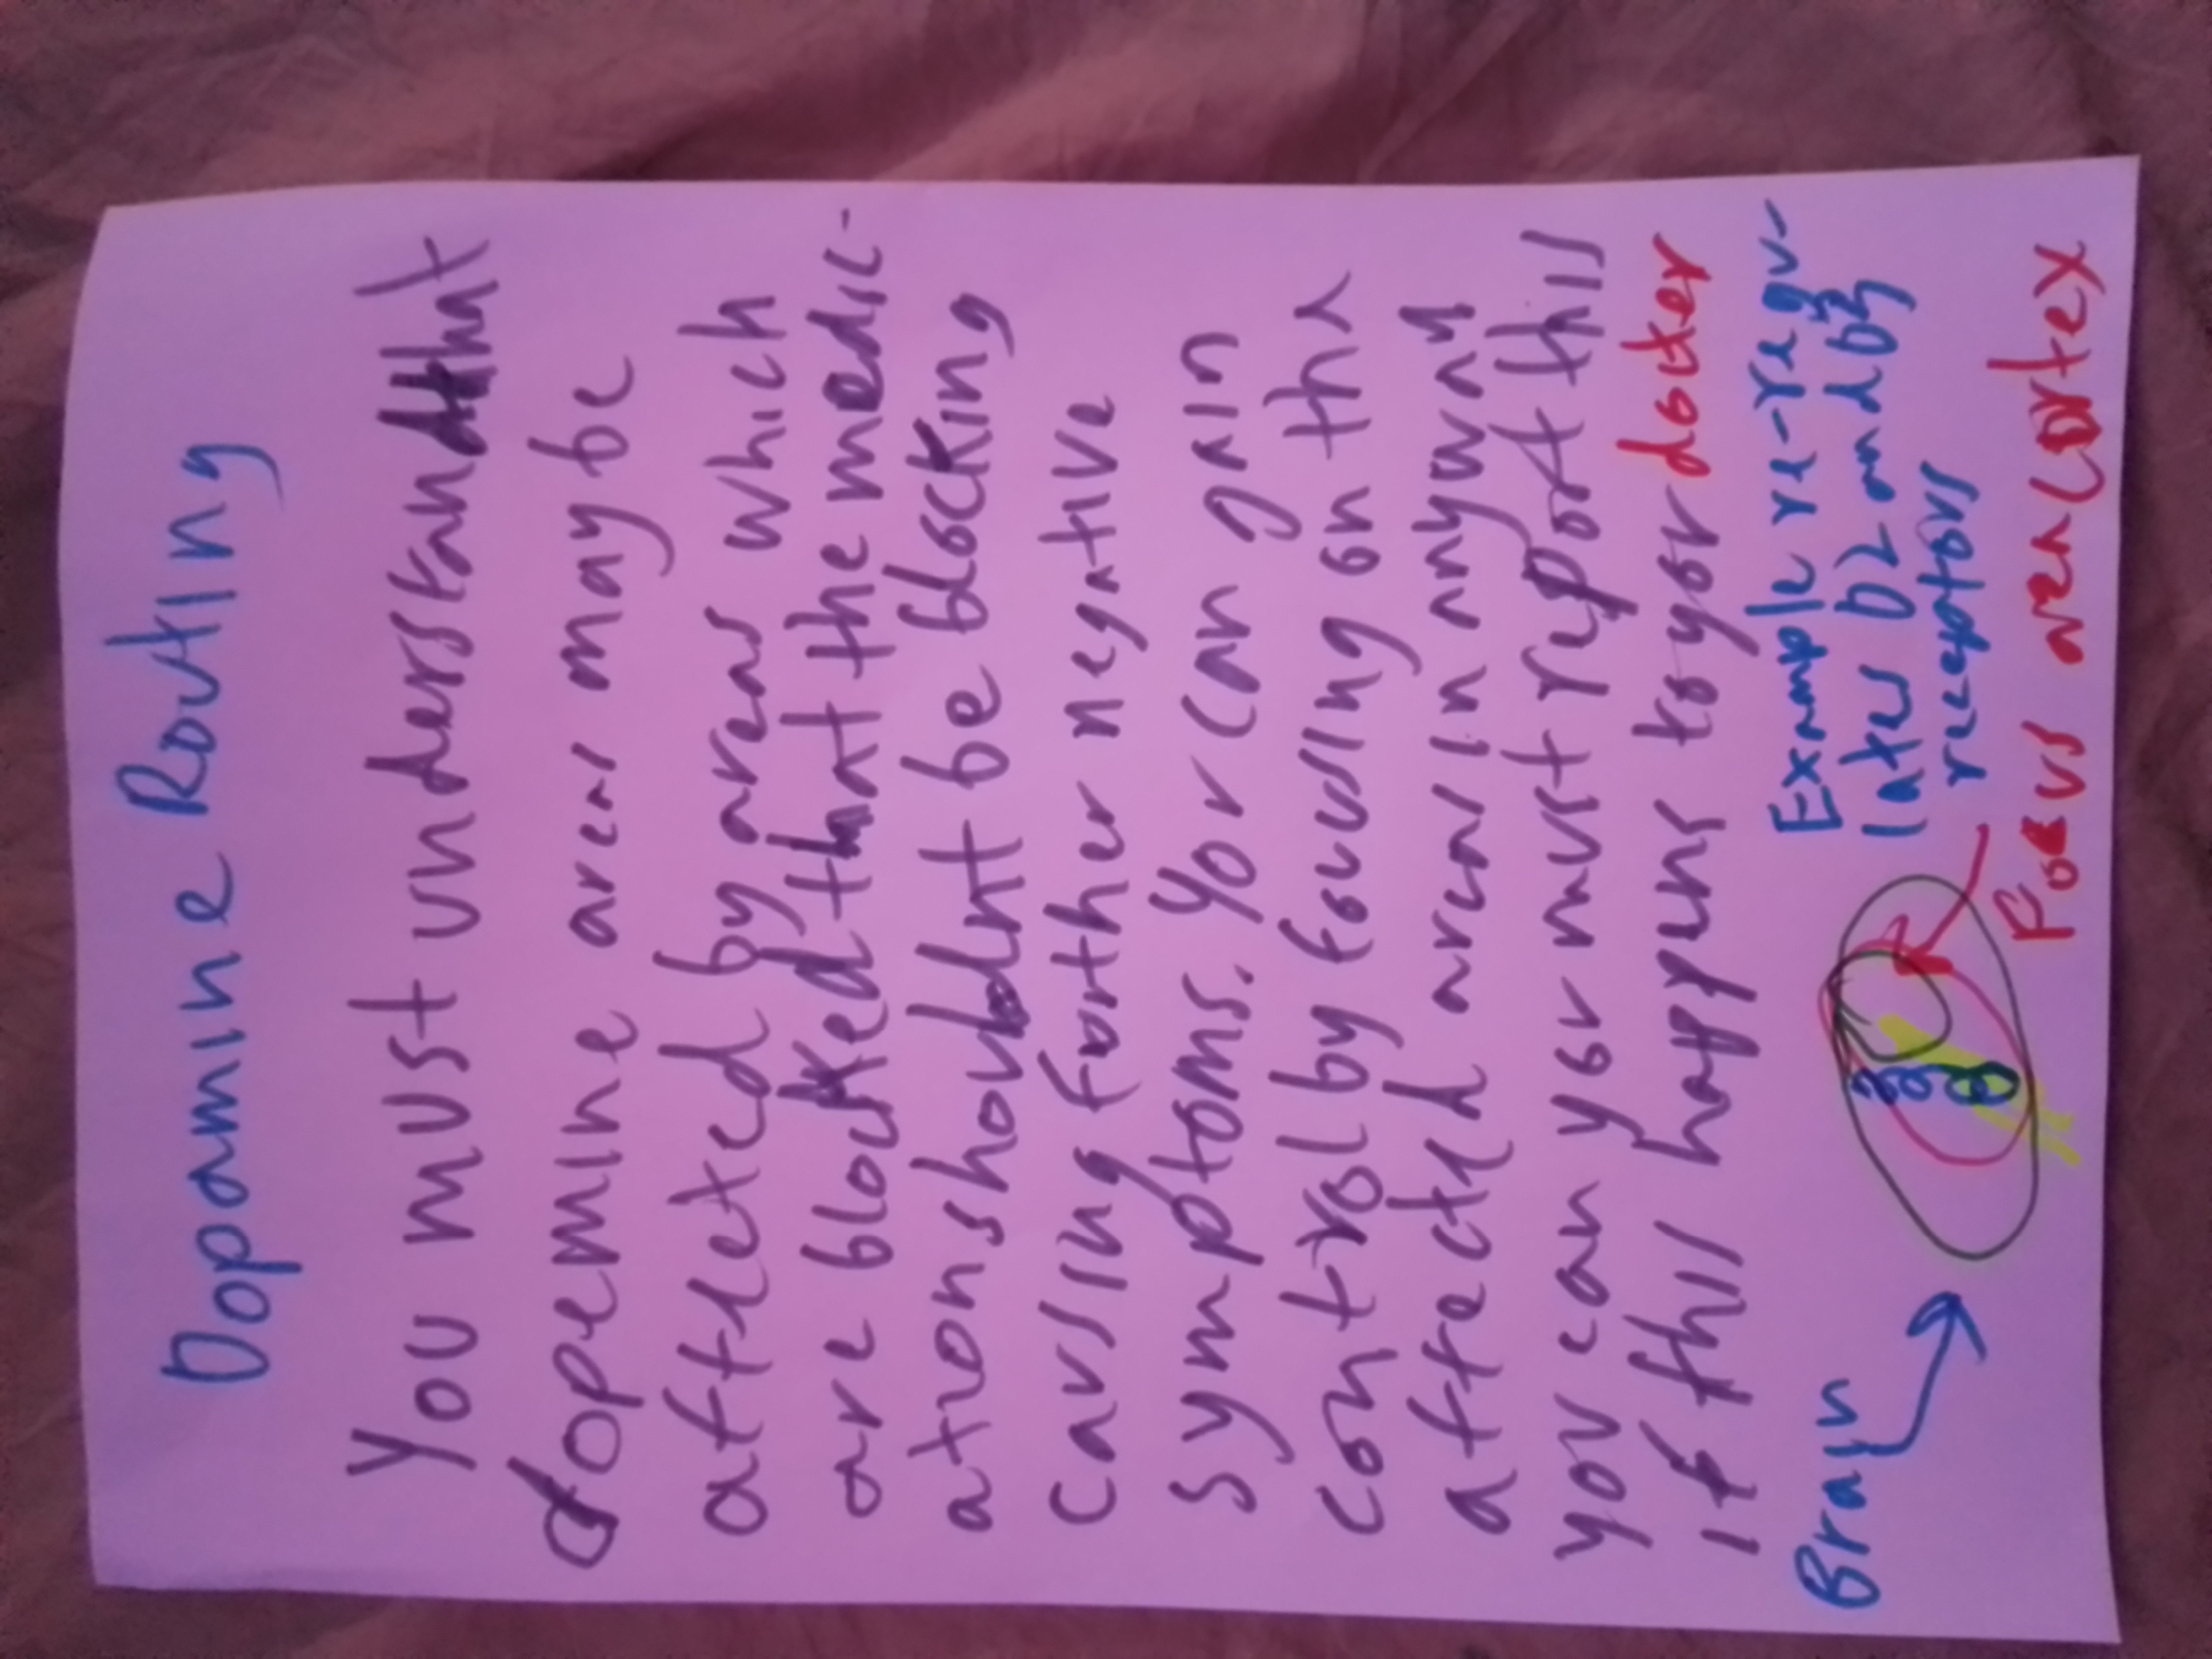 Dopamine Routing
You must understand that
dopemine areas may be
affleted by areas which
are blocked that the medic-
ation shouldnt be blocking
causing further negative
symptoms. You can gain
control by focusing on the
affected areas in anyway
you can you must report this
if this happens to your doctor
Example re-reg-
lates D2 and
receptors
Brain
Focus near cortex